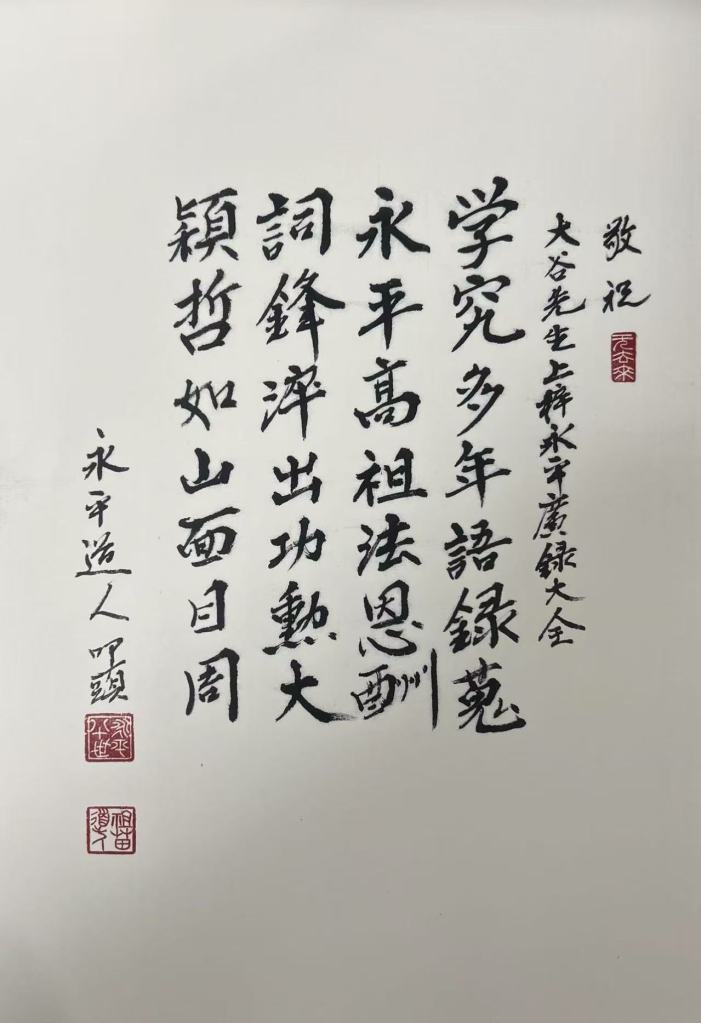 敬祝
大谷先生上梓永平廣録大全
学究多年語録蒐
永平高祖法恩酬
詞鋒淬出功勲大
穎哲如山面目周
永平道人叩頭
永平八十世
祖苗道人